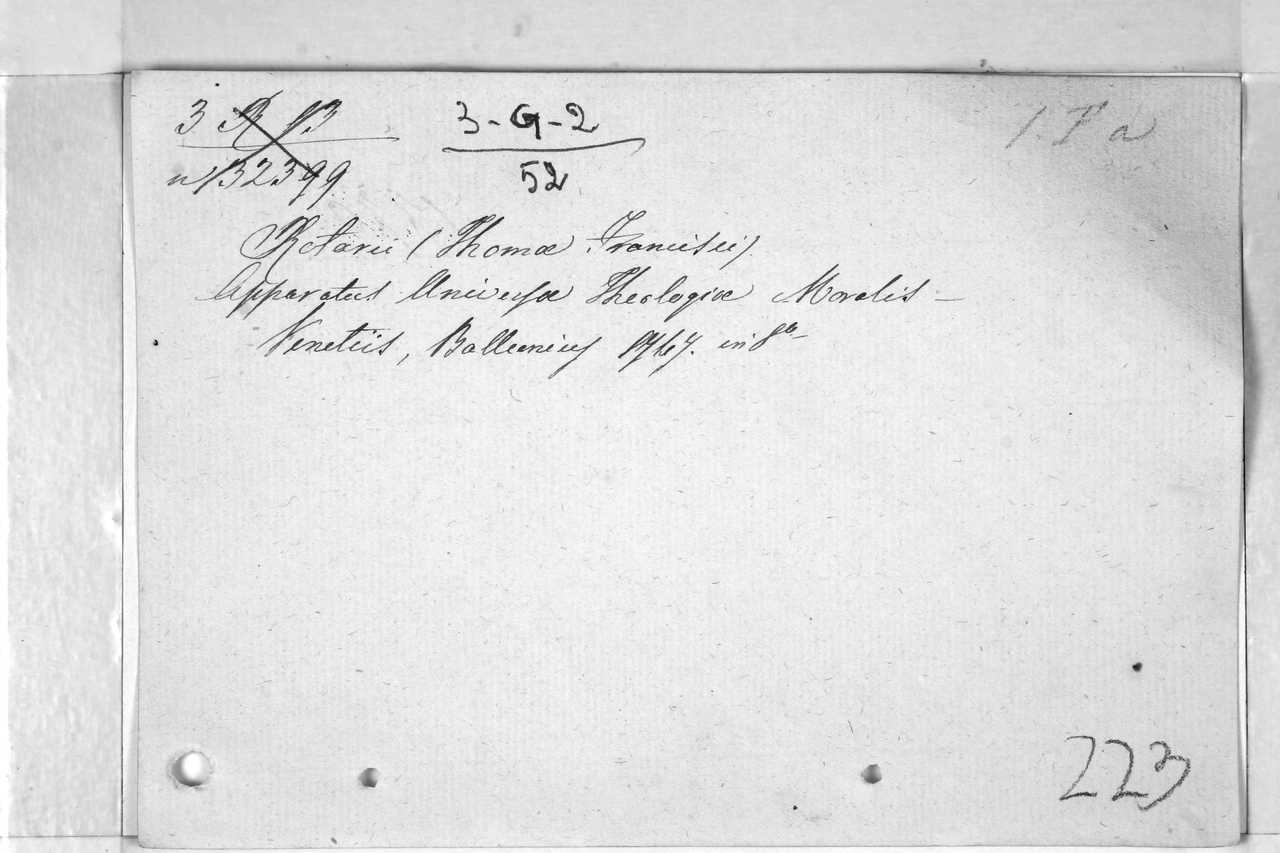 3 R 13
n 132399
3-G-2
52
1. P a
Rotarii (Thomæ Francisci)
Apparatus Universæ Theologiæ Moralis –
Venetiis, Balleonius 1767. in 8º
223